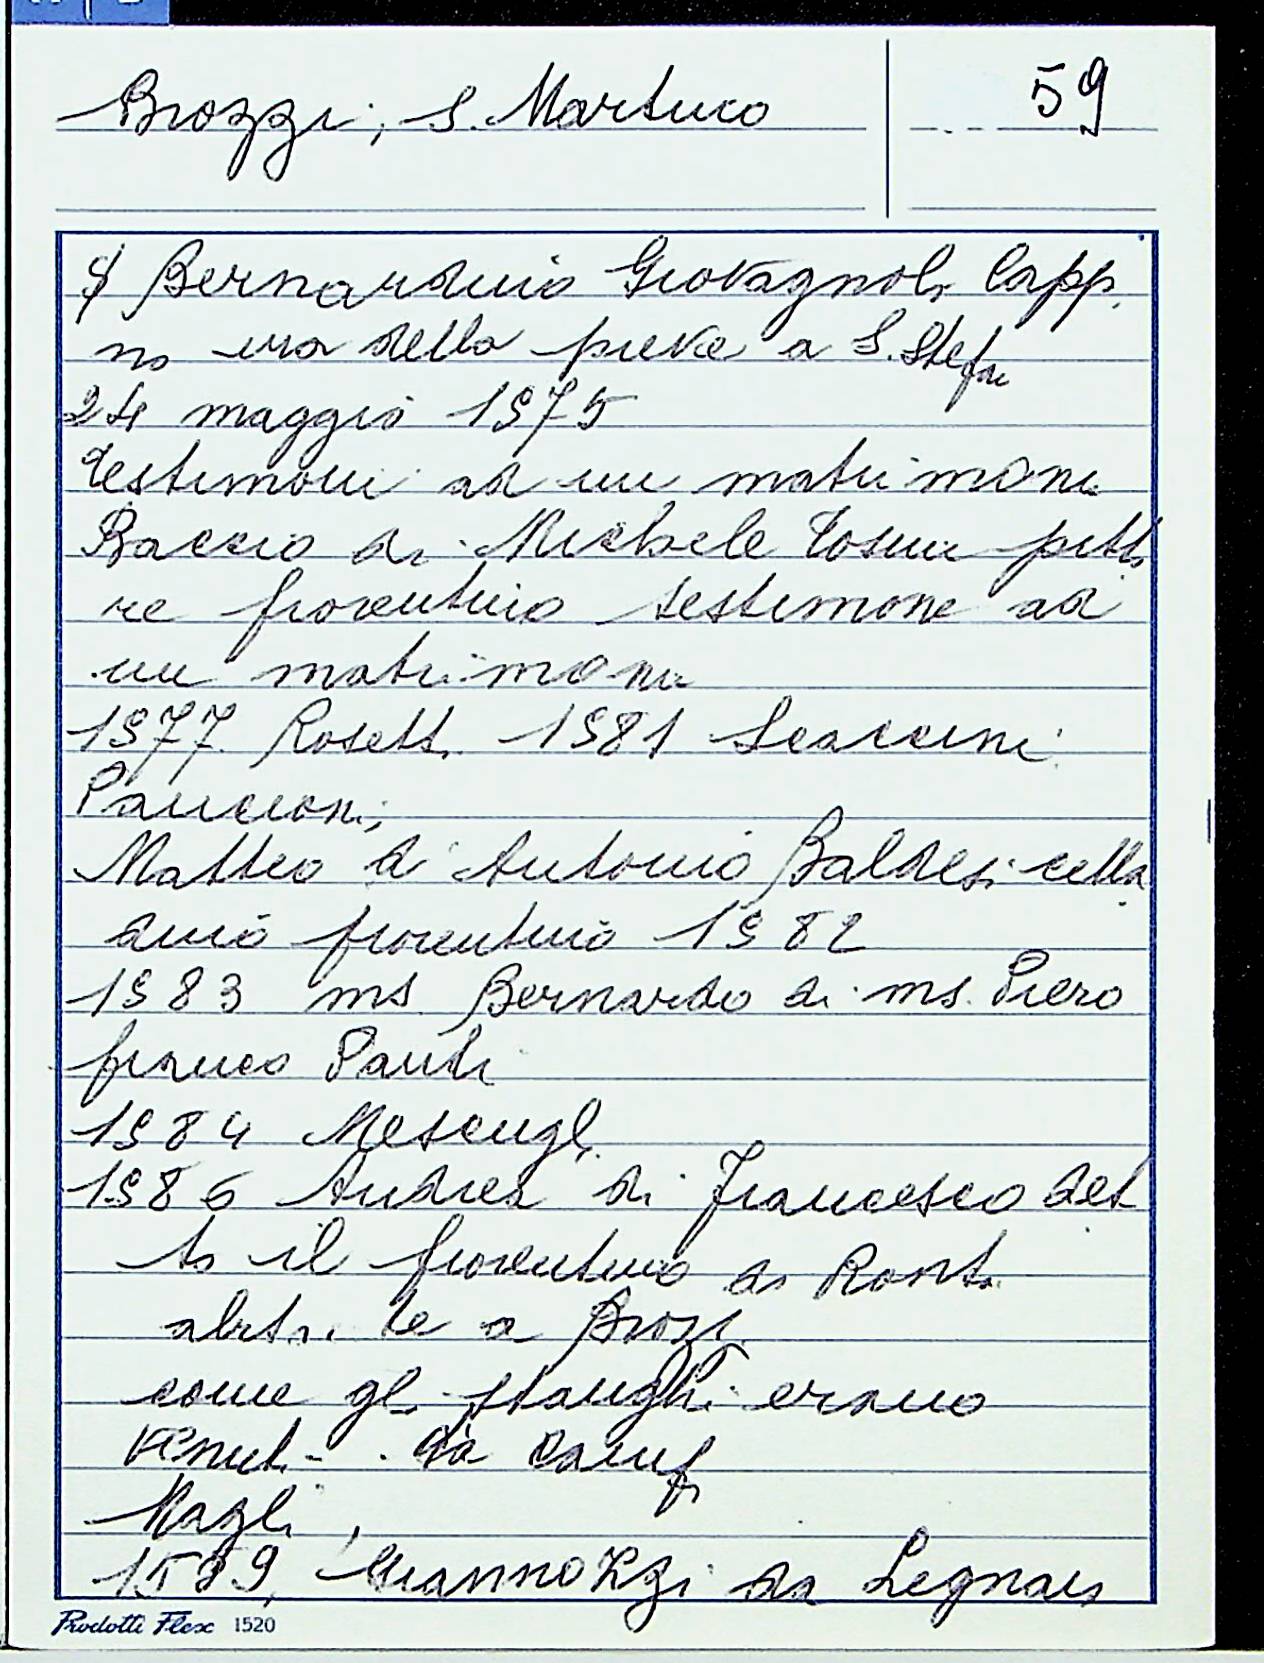 Brozzi, S. Martino
59
S Bernardino Giovagnoli Capp
no ura della pieve a S. Stefa
24 maggio 1575
testimoni ad un matrimoni
Baccio di Michele Tosini pitto
re fiorentino testimone ad
un matrimoni
1577 Rosetti 1581 Scaccini
Panccioni,
Matteo di Antonio Baldesi cella
aino fiorentino 1582
1583 ms Bernardo di ms. Piero
franco Panti
1584 Mescugli
1586 Andrea di Francesco det
to il fiorentino da Ronta
abita. te a Brozzi
come gli stanghi erano
venuti da Campi
Magli,
1589, Giannozzi da Legnaia
Prodotti Flex 1520